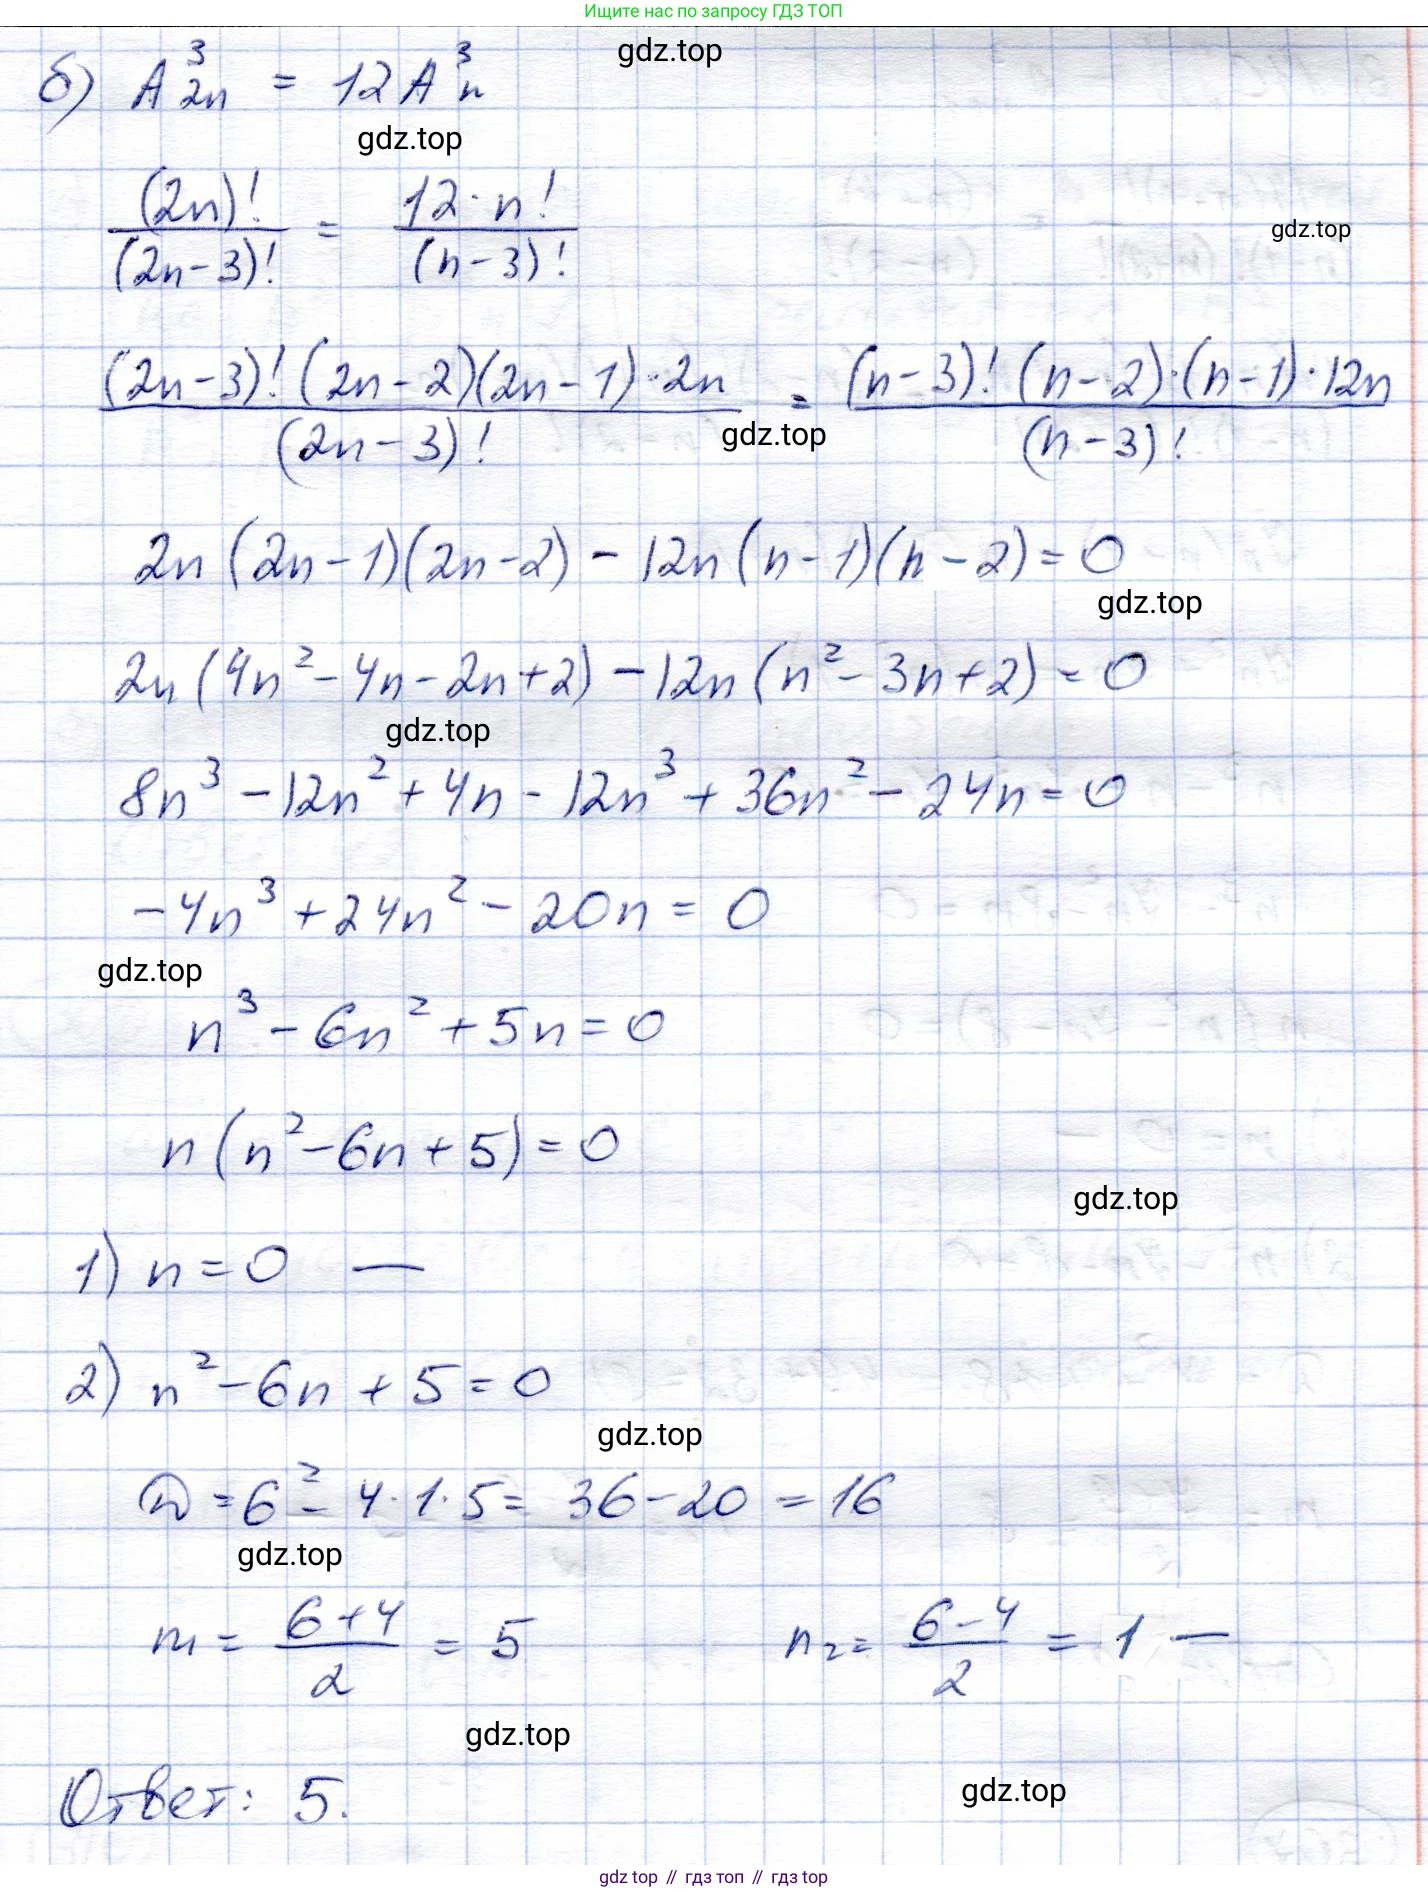 Ищите нас по запросу ГДЗ ТОП
gdz.top
б) A³₂ₙ = 12A³ₙ
gdz.top
(2n)!/(2n-3)! = 12·n!/(n-3)!
gdz.top
(2n-3)!(2n-2)(2n-1)·2n/(2n-3)! = (n-3)!(n-2)·(n-1)·12n/(n-3)!
gdz.top
2n(2n-1)(2n-2) - 12n(n-1)(n-2) = 0
gdz.top
2n(4n²-4n-2n+2) - 12n(n²-3n+2) = 0
gdz.top
8n³ - 12n² + 4n - 12n³ + 36n² - 24n = 0
-4n³ + 24n² - 20n = 0
gdz.top
n³ - 6n² + 5n = 0
n(n²-6n+5) = 0
gdz.top
1) n = 0 —
2) n² - 6n + 5 = 0
gdz.top
D = 6² - 4·1·5 = 36 - 20 = 16
gdz.top
n₁ = (6+4)/2 = 5 n₂ = (6-4)/2 = 1 —
gdz.top
Ответ: 5.
gdz.top
gdz top // гдз топ // gdz top